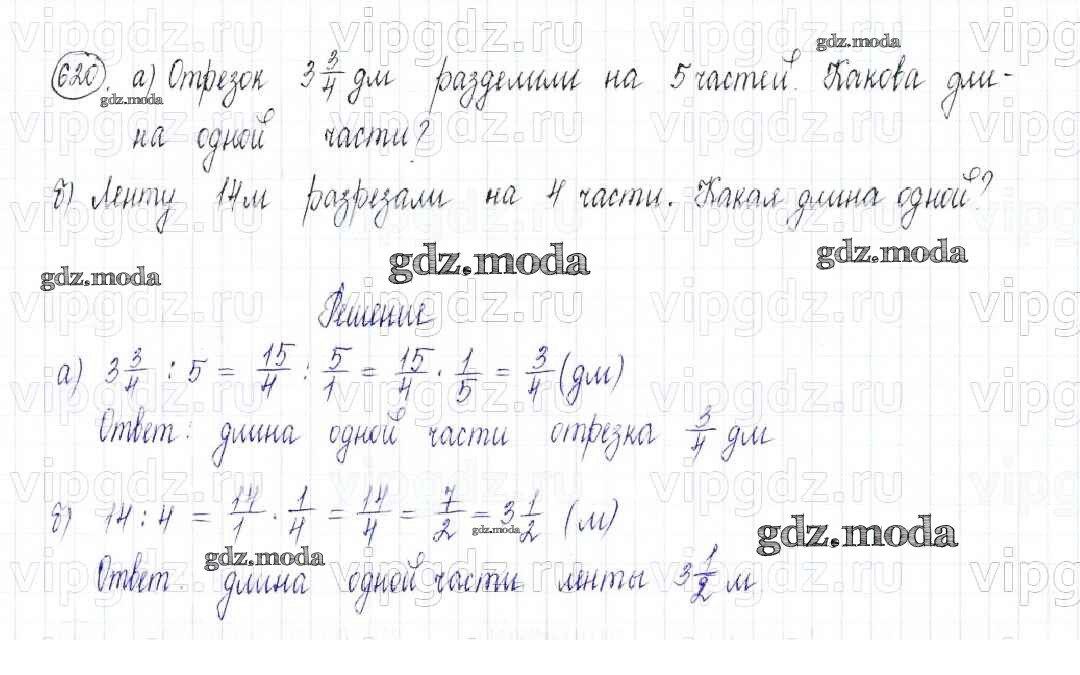 620. а) Отрезок 3 3/4 дм разделили на 5 частей. Какова дли-
на одной части?
б) Ленту 14м разрезали на 4 части. Какая длина одной?
gdz.moda
Решение
а) 3 3/4 : 5 = 15/4 : 5/1 = 15/4 · 1/5 = 3/4 (дм)
Ответ: длина одной части отрезка 3/4 дм
б) 14 : 4 = 14/1 · 1/4 = 14/4 = 7/2 = 3 1/2 (м)
Ответ. длина одной части ленты 3 1/2 м
vipgdz.ru